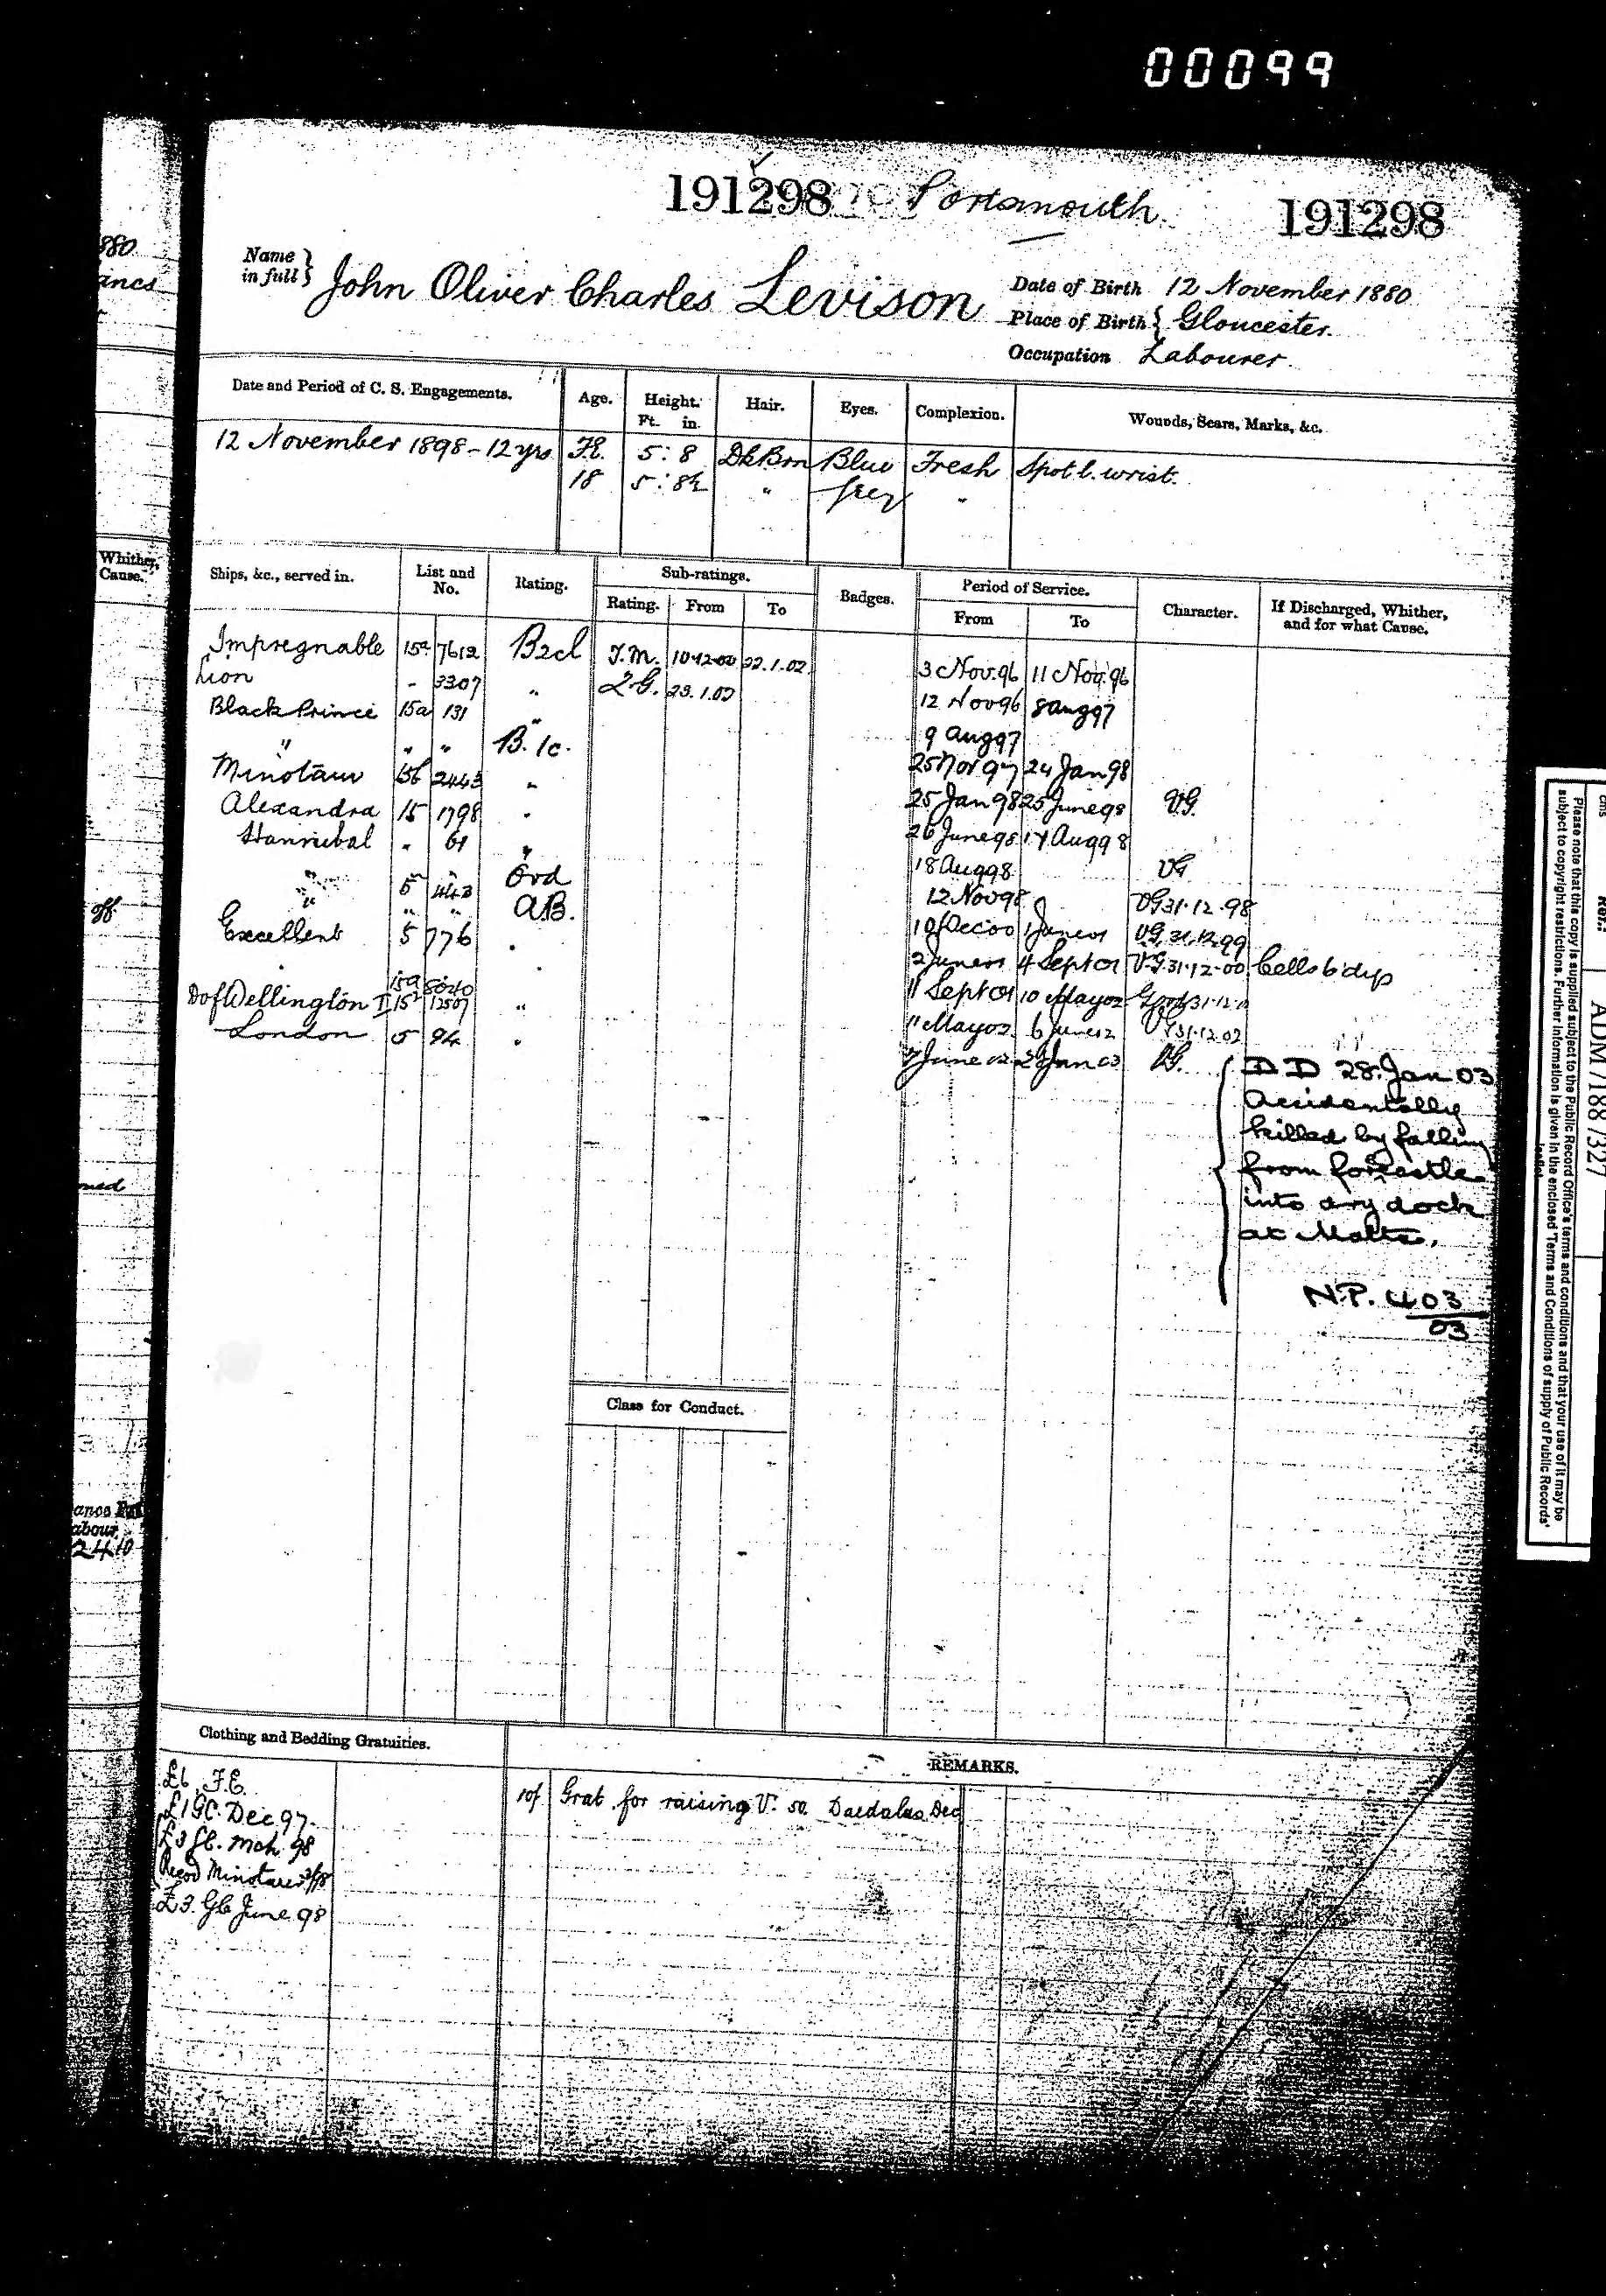 00099
191298 Portsmouth 191298
Name in full } John Oliver Charles Levison
Date of Birth 12 November 1880
Place of Birth } Gloucester.
Occupation Labourer.
Date and Period of C. S. Engagements. Age. Height. Ft. in. Hair. Eyes. Complexion. Wounds, Scars, Marks, &c.
12 November 1898 - 12 yrs. F.E. 5 : 8 Dk Brn Blue Fresh Spot l. wrist.
18 5 : 8½ " Grey "
Ships, &c., served in. List and No. Rating. Sub-ratings. Rating. From To Badges. Period of Service. From To Character. If Discharged, Whither, and for what Cause.
Impregnable 15a 7612 B2cl T.M. 10.12.00 22.1.02. 3 Nov. 96 11 Nov. 96
Lion - 3307 " S.G. 23.1.02 12 Nov 96 8 Aug 97
Black Prince 15a 131 " 9 Aug 97
" " " B. 1c. 25 Nov 97 24 Jan 98
Minotaur 15b 2443 " 25 Jan 98 25 June 98 V.G.
Alexandra 15 1798 " 26 June 98 17 Aug 98
Hannibal " 61 " 18 Aug 98 VG
" 5 443 Ord 12 Nov 98 VG 31.12.98
" " " A.B. 1 June 01 V.G. 31.12.99
Excellent 5 776 " 2 June 01 4 Sept 01 V.G. 31.12.00 Cells 6 dys
15a 8040 11 Sept 01 10 May 02
D of Wellington II 15a 12507 " 11 May 02 6 June 02 31.12.02
London 5 94 " 7 June 02 28 Jan 03 VG.
D D 28 Jan 03
Accidentally
killed by falling
from forecastle
into dry dock
at Malta.
N.P. 403
03
Class for Conduct.
Clothing and Bedding Gratuities.
REMARKS.
£6 F.E.
£1 GC. Dec 97.
£3 Gc. Mch. 98
Recd Minotaur
£3. Gc June 98
10/ Grat. for raising V. 50. Daedalus Dec
880
Whither,
Cause.
off.
ance
abour.
2410
Ref.:
ADM /188 /327
Please note that this copy is supplied subject to the Public Record Office's terms and conditions and that your use of it may be
subject to copyright restrictions. Further information is given in the enclosed 'Terms and Conditions of supply of Public Records'
leaflet